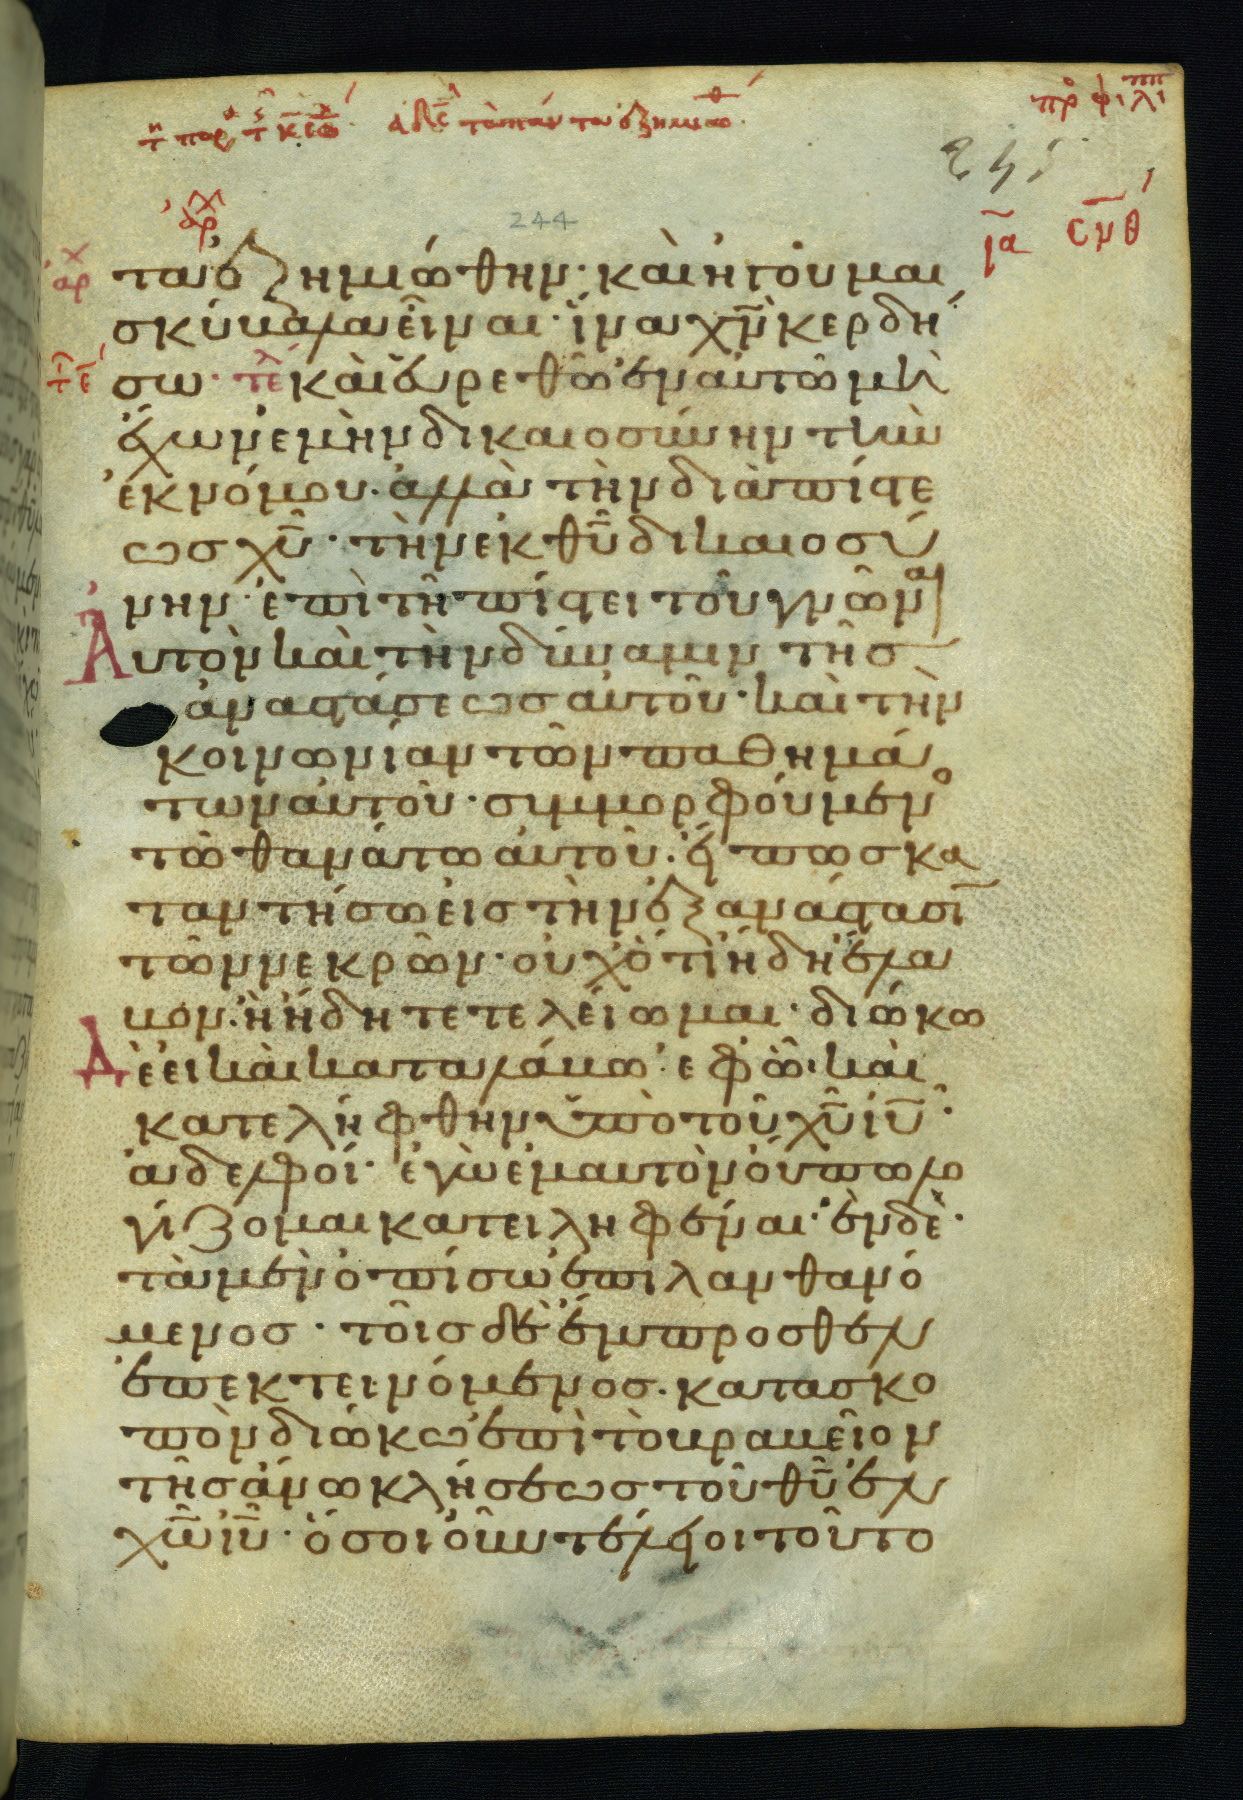 πρ φιλιπ
τ παρ τ κε ἀδε τὰ πάντα ἐζημιωθ
245
244
ια σμθ
ἀρχ
ἀρχ
τα ἐζημιώθην· καὶ ἡγοῦμαι
σκύβαλα εἶναι· ἵνα χν κερδή
σω· τε καὶ εὑρεθῶ ἐν αυτῶ μὴ
ἔχων ἐμὴν δικαιοσύνην τὴν
ἐκ νόμου· ἀλλὰ τὴν διὰ πίστε
ως χυ· τὴν ἐκ θυ δικαιοσύ
νην· ἐπὶ τῆ πίστει τοῦ γνῶναι
Αυτὸν καὶ τὴν δύναμιν τῆς
ἀναστάσεως αὐτοῦ· καὶ τὴν
κοινωνίαν τῶν παθημά
των αὐτοῦ· συμμορφούμενο
τῶ θανάτω αὐτοῦ· εἴ πως κα
ταντήσω εἰς τὴν ἐξανάστασι
τῶν νεκρῶν· οὐχ ὅτι ἤδη ἔλα
βον· ἢ ἤδη τετελείωμαι· διώκω
Δὲ εἰ καὶ καταλάβω· ἐφ ῶ· καὶ
κατελήφθην ὑπὸ τοῦ χυ ιυ·
ἀδελφοί· ἐγὼ ἐμαυτὸν οὔπω λο
γίζομαι κατειληφέναι· ἓν δὲ·
τὰ μὲν ὀπίσω ἐπιλανθανό
μενος· τοῖς δὲ ἔμπροσθεν
ἐπεκτεινόμενος· κατα σκο
πὸν διώκω ἐπὶ τὸ βραβεῖον
τῆς ἄνω κλήσεως τοῦ θυ ἐν
χω ιυ· ὅσοι οὖν τέλειοι τοῦτο